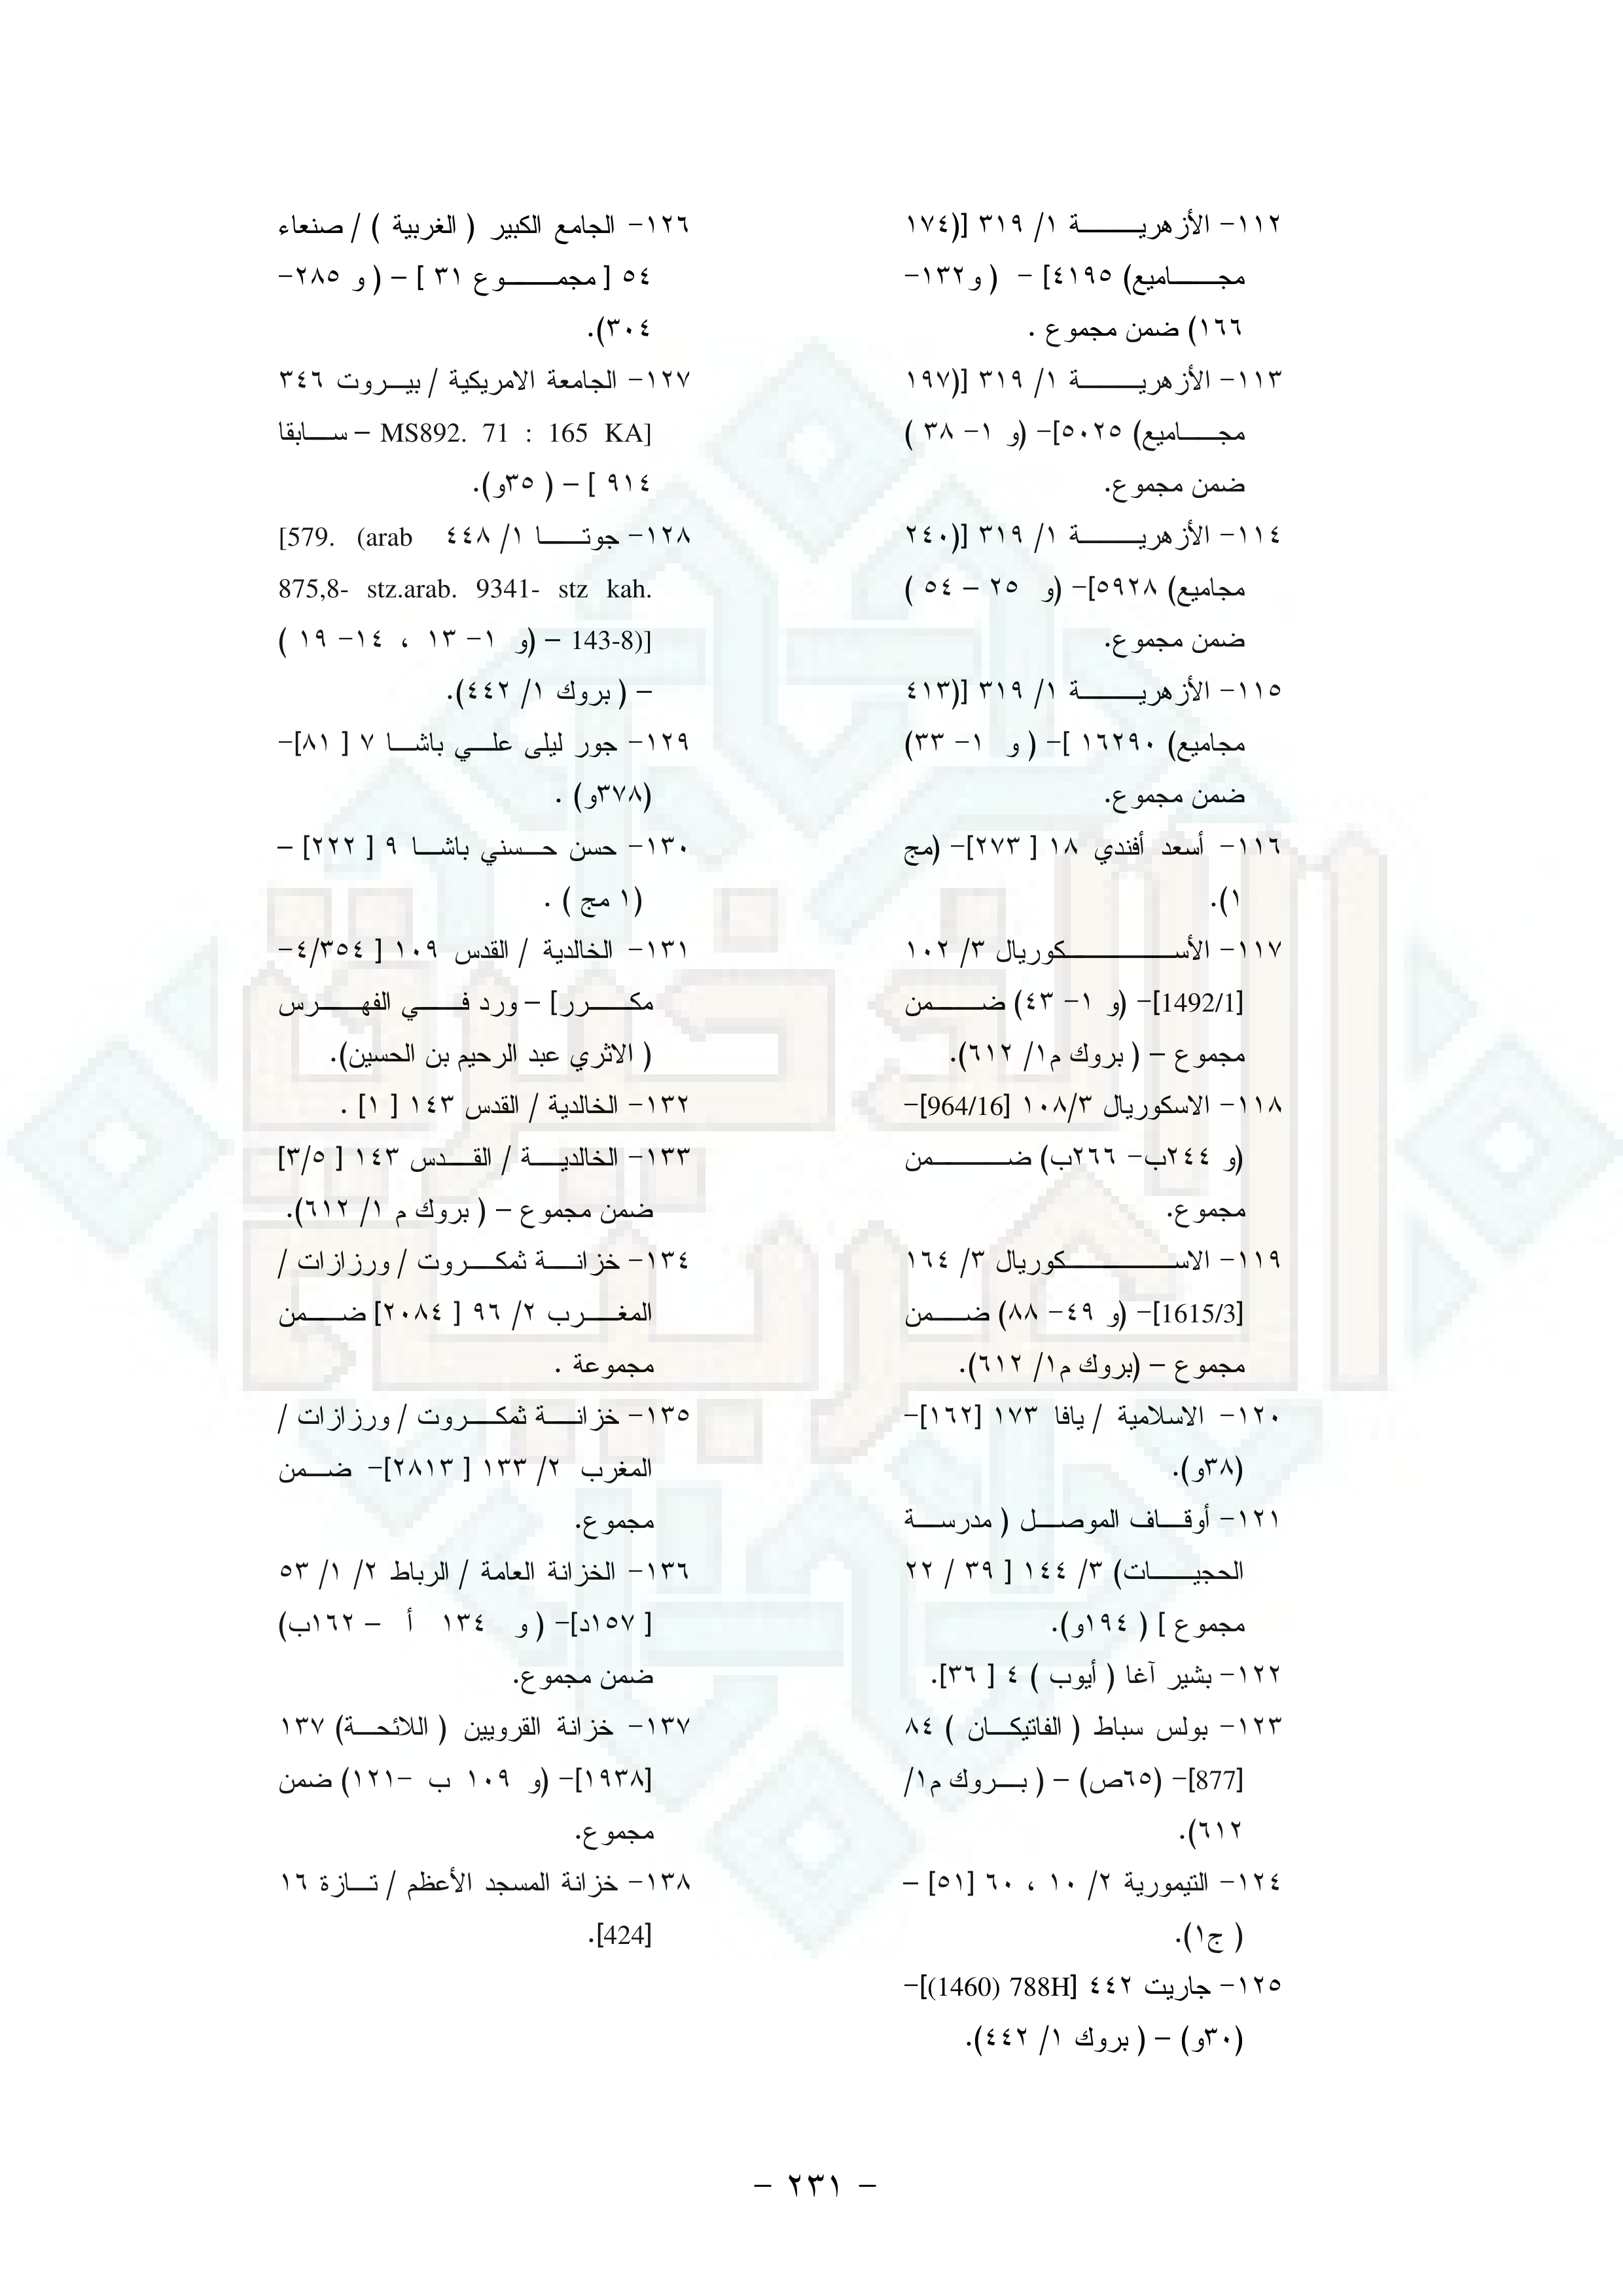 ١١٢- الأزهرية ١/ ٣١٩ [(١٧٤
مجاميع) ٤١٩٥] - ( و١٣٢-
١٦٦) ضمن مجموع .
١١٣- الأزهرية ١/ ٣١٩ [(١٩٧
مجاميع) ٥٠٢٥]- (و ١- ٣٨ )
ضمن مجموع.
١١٤- الأزهرية ١/ ٣١٩ [(٢٤٠
مجاميع) ٥٩٢٨]- (و ٢٥ – ٥٤ )
ضمن مجموع.
١١٥- الأزهرية ١/ ٣١٩ [(٤١٣
مجاميع) ١٦٢٩٠ ]- ( و ١- ٣٣)
ضمن مجموع.
١١٦- أسعد أفندي ١٨ [ ٢٧٣]- (مج
١).
١١٧- الأسكوريال ٣/ ١٠٢
[1492/1]- (و ١- ٤٣) ضمن
مجموع – ( بروك م١/ ٦١٢).
١١٨- الاسكوريال ١٠٨/٣ [964/16]-
(و ٢٤٤ب- ٢٦٦ب) ضمن
مجموع.
١١٩- الاسكوريال ٣/ ١٦٤
[1615/3]- (و ٤٩- ٨٨) ضمن
مجموع – (بروك م١/ ٦١٢).
١٢٠- الاسلامية / يافا ١٧٣ [١٦٢]-
(٣٨و).
١٢١- أوقاف الموصل ( مدرسة
الحجيات) ٣/ ١٤٤ [ ٣٩ / ٢٢
مجموع ] ( ١٩٤و).
١٢٢- بشير آغا ( أيوب ) ٤ [ ٣٦].
١٢٣- بولس سباط ( الفاتيكان ) ٨٤
[877]- (٦٥ص) – ( بروك م١/
٦١٢).
١٢٤- التيمورية ٢/ ١٠ ، ٦٠ [٥١] –
( ج١).
١٢٥- جاريت ٤٤٢ [788H (1460)]-
(٣٠و) – ( بروك ١/ ٤٤٢).
١٢٦- الجامع الكبير ( الغربية ) / صنعاء
٥٤ [ مجموع ٣١ ] – ( و ٢٨٥-
٣٠٤).
١٢٧- الجامعة الامريكية / بيروت ٣٤٦
[MS892. 71 : 165 KA – سابقا
٩١٤ ] – ( ٣٥و).
١٢٨- جوتا ١/ ٤٤٨ [579. (arab
875,8- stz.arab. 9341- stz kah.
143-8)] – (و ١- ١٣ ، ١٤- ١٩ )
– ( بروك ١/ ٤٤٢).
١٢٩- جور ليلى علي باشا ٧ [ ٨١]-
(٣٧٨و) .
١٣٠- حسن حسني باشا ٩ [ ٢٢٢] –
(١ مج ) .
١٣١- الخالدية / القدس ١٠٩ [ ٤/٣٥٤-
مكرر] – ورد في الفهرس
( الاثري عبد الرحيم بن الحسين).
١٣٢- الخالدية / القدس ١٤٣ [ ١] .
١٣٣- الخالدية / القدس ١٤٣ [ ٣/٥]
ضمن مجموع – ( بروك م ١/ ٦١٢).
١٣٤- خزانة ثمكروت / ورزازات /
المغرب ٢/ ٩٦ [ ٢٠٨٤] ضمن
مجموعة .
١٣٥- خزانة ثمكروت / ورزازات /
المغرب ٢/ ١٣٣ [ ٢٨١٣]- ضمن
مجموع.
١٣٦- الخزانة العامة / الرباط ٢/ ١/ ٥٣
[ ١٥٧د]- ( و ١٣٤ أ – ١٦٢ب)
ضمن مجموع.
١٣٧- خزانة القرويين ( اللائحة) ١٣٧
[١٩٣٨]- (و ١٠٩ ب -١٢١) ضمن
مجموع.
١٣٨- خزانة المسجد الأعظم / تازة ١٦
[424].
– ٢٣١ –
الذخائر
العربية